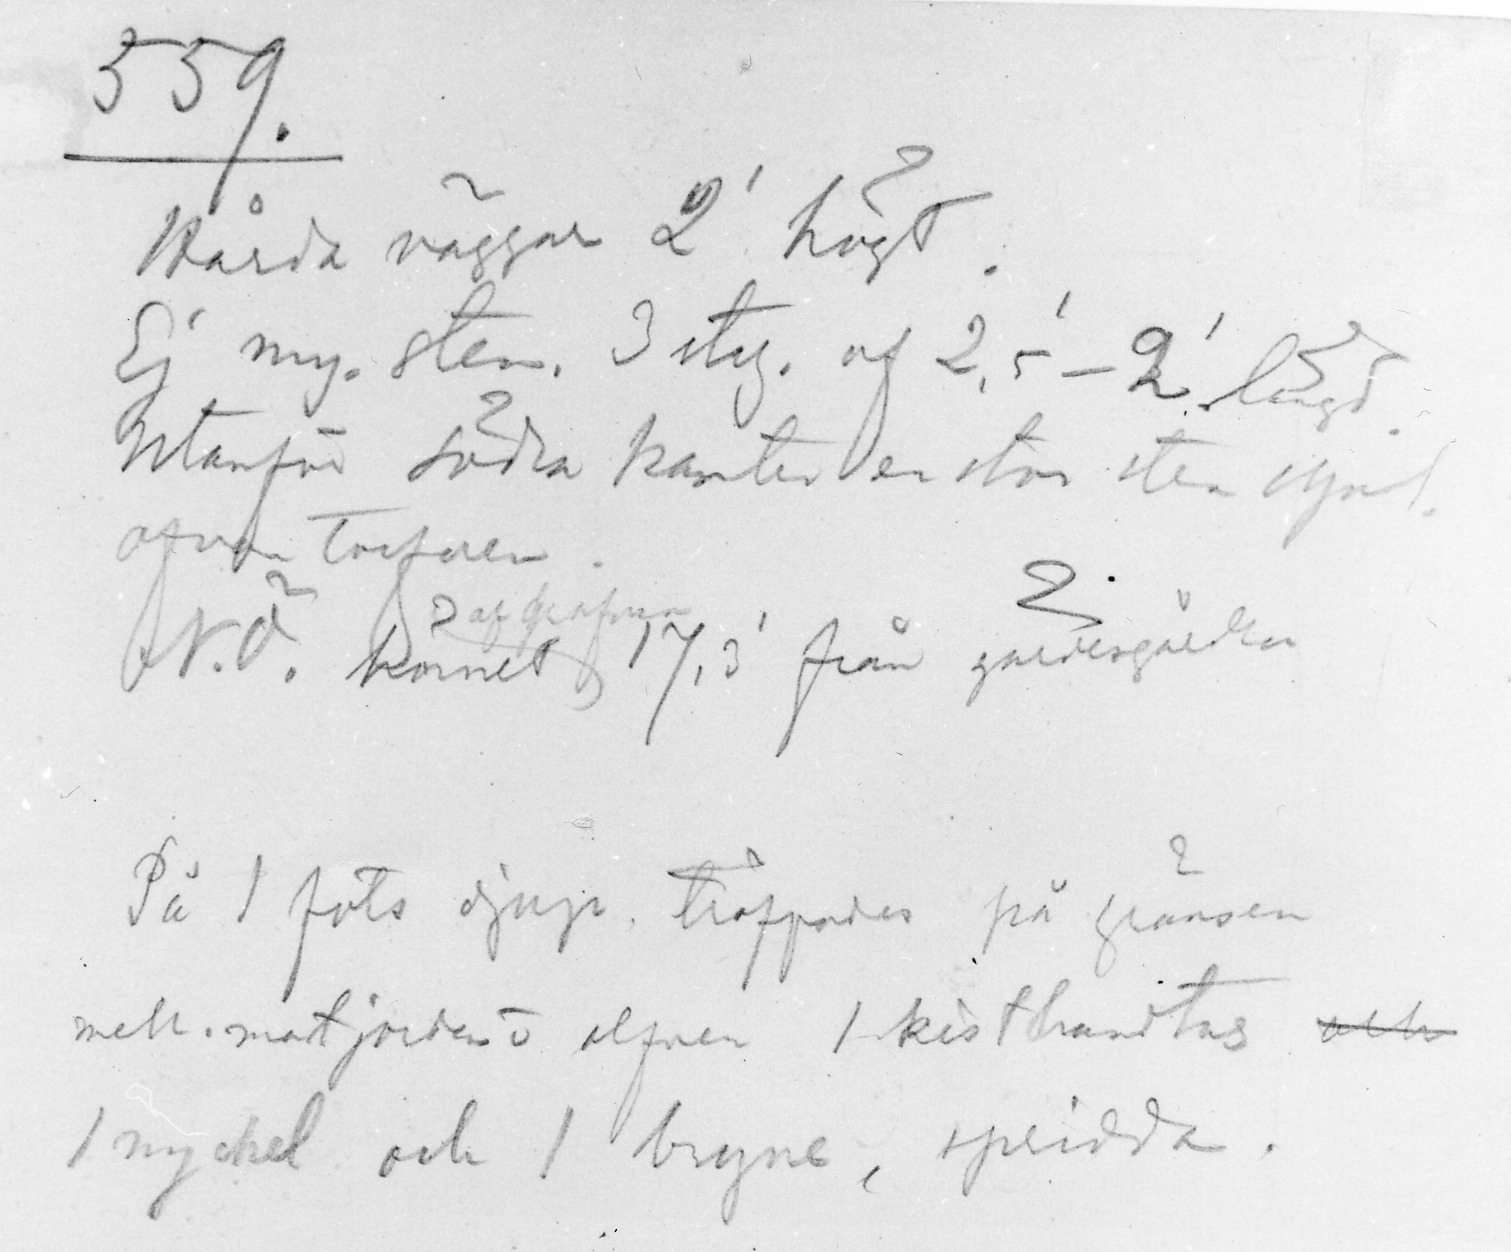 559.
Hårda väggar 2' högt.
Ej my. sten. 3 sty. af 2,5' – 2' längd.
Utanför södra kanten en stor sten
ofvan torfven.
N.Ö. hörnet af grafven 17,3' från gärdesgården
På 1 fots djup. träffades på gränsen
mell. matjorden o alfven 1 kisthandtag och
1 nyckel och 1 bryne, spridda.